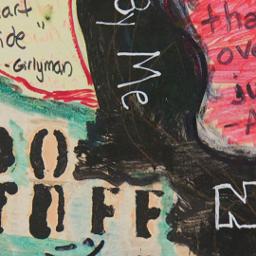 art
ide"
- Girlyman
By Me
tha
ove
- A
OO
TUFF
N